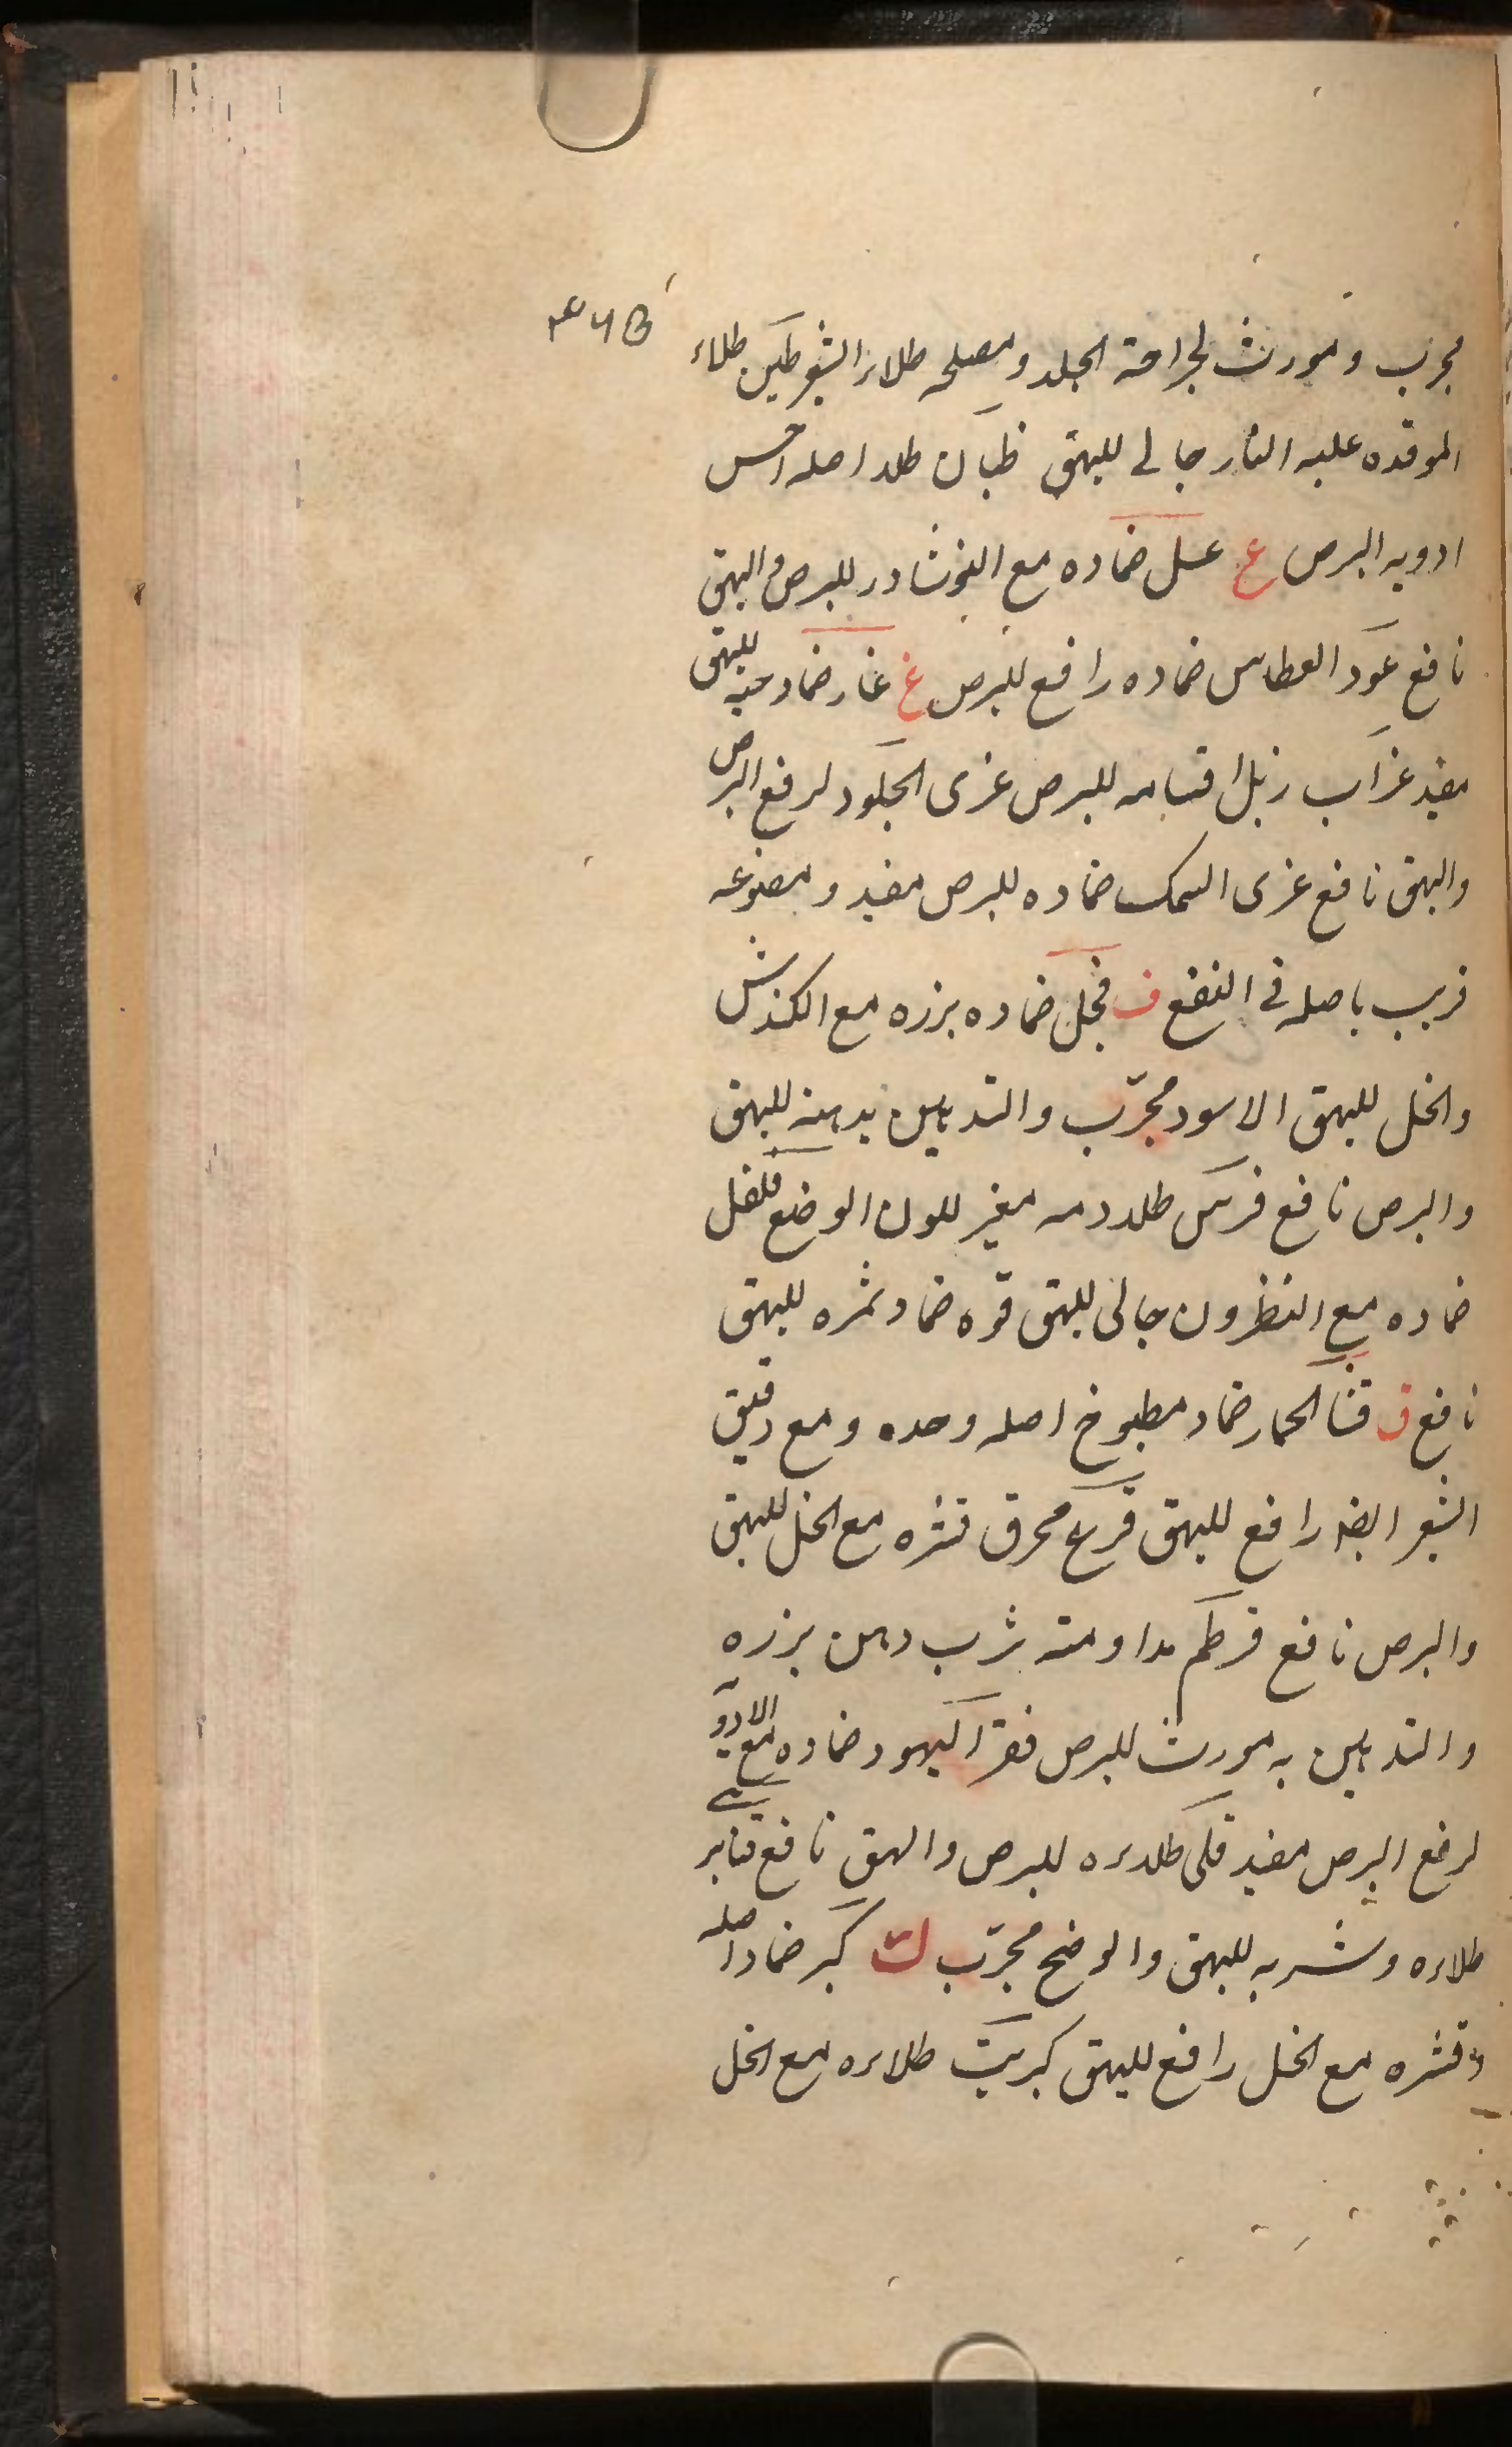 مجرب و مورث لجراحة الجلد و مصلحه طلاء الشعیر طین طلاء
الموقده علیه النار جالی للبهق ظیان طلاء اصله احسن
ادویه البرص ع عسل ضماده مع النوشادر للبرص و البهق
نافع عود العطاس ضماده رافع للبرص غ غار ضماد حبه للبهق
مفید غراب زبل اقسامه للبرص غری الجلود لرفع البرص
والبهق نافع غری السمک ضماده للبرص مفید و مصنوعه
قریب باصله فی النفع ف فجل ضماده بزره مع الکندش
والخل للبهق الاسود مجرّب والتدهین بدهنه للبهق
والبرص نافع فرس طلاء دمه مغیر للون الوضع فلفل
ضماده مع النطرون جالی للبهق فوه ضماد ثمره للبهق
نافع ق قثا الحمار ضماد مطبوخ اصله وحده و مع دقیق
الشعیر ایضه رافع للبهق قرع محرق قشره مع الخل للبهق
والبرص نافع قرطم مداومته شرب دهن بزره
والتدهین به مورث للبرص قفر الیهود ضماده مع الادویه
لرفع البرص مفید قلی طلاءه للبرص والبهق نافع قنابری
طلاءه وشربه للبهق والوضح مجرّب ک کبر ضماد اصله
و قشره مع الخل رافع للبهق کبریت طلاءه مع الخل